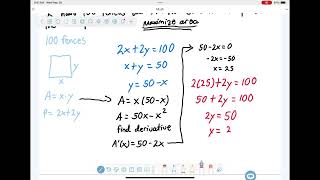 maximize area
100 fences
y
x
A = x·y
P = 2x + 2y
2x + 2y = 100
x + y = 50
y = 50 - x
A = x (50 - x)
A = 50x - x²
find derivative
A'(x) = 50 - 2x
50 - 2x = 0
-2x = -50
x = 25
2(25) + 2y = 100
50 + 2y = 100
2y = 50
y = 2